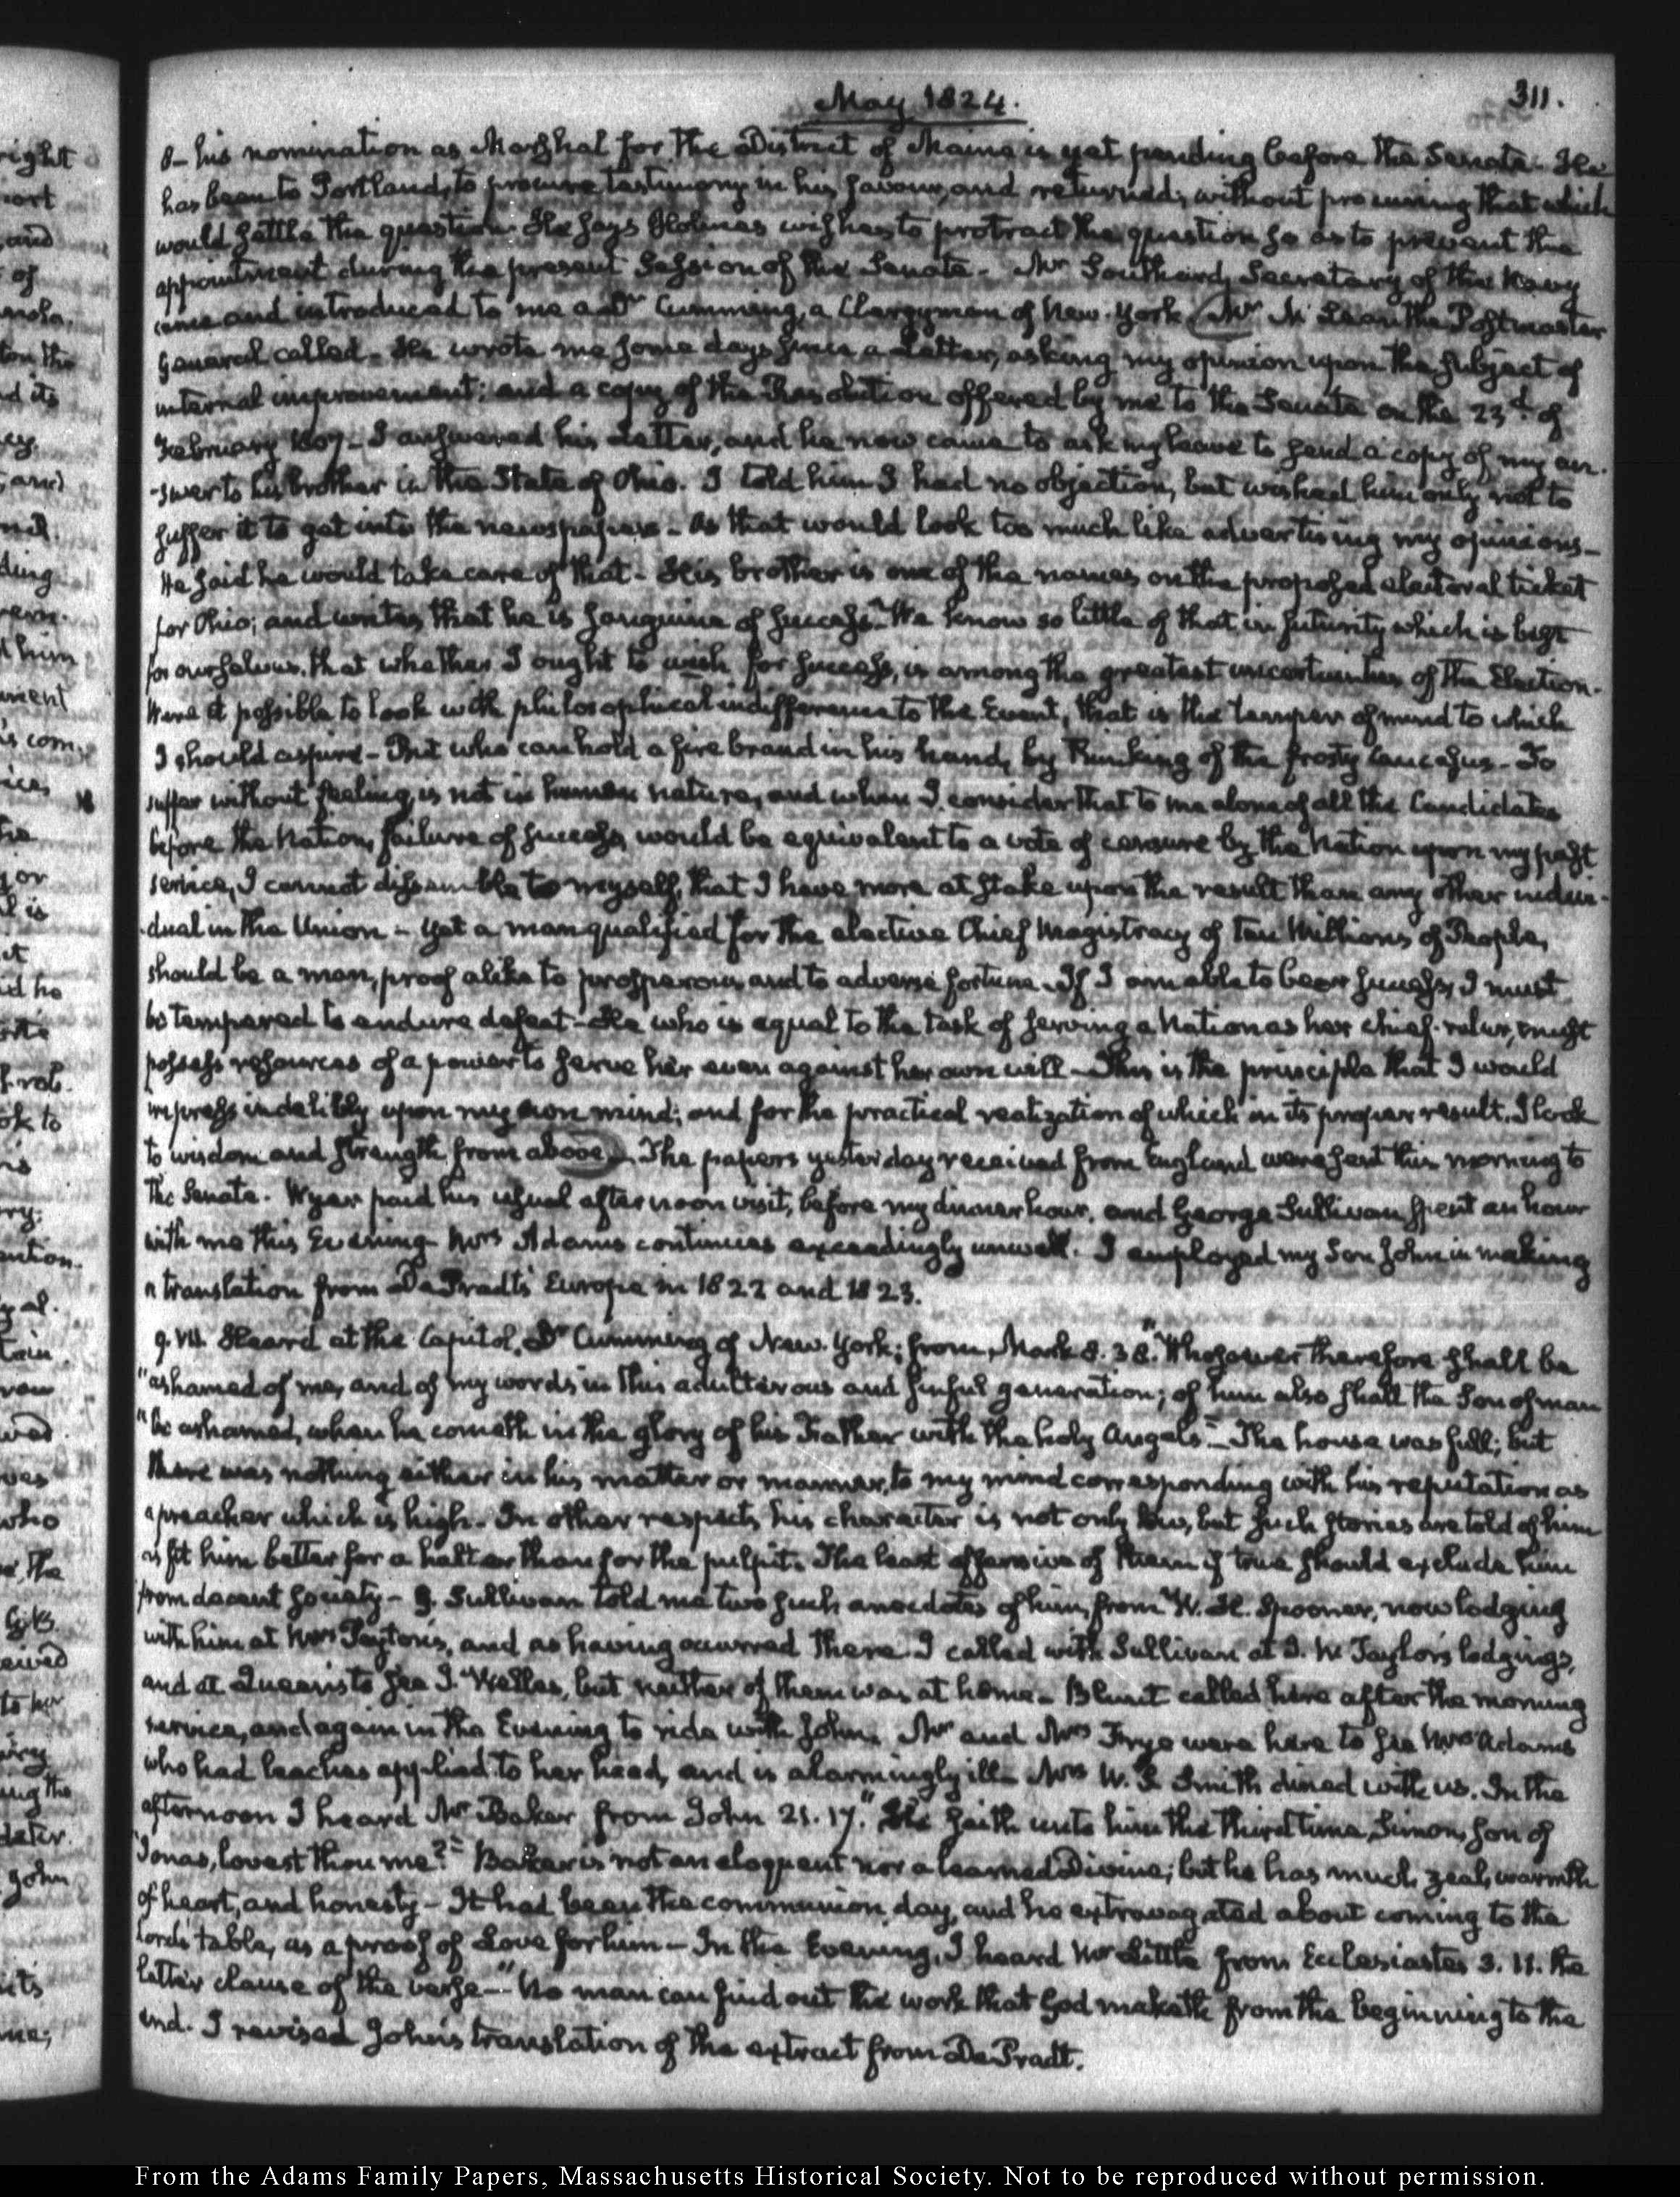 May 1824.
311.
8— his nomination as Marshal for the District of Maine is yet pending before the Senate. He
has been to Portland, to procure testimony in his favour, and returned, without procuring that which
would settle the question. He says Holmes wishes to protract the question so as to prevent the
appointment during the present Session of the Senate— Mr Southard, Secretary of the Navy
came and introduced to me a Dr Cumming, a Clergyman of New-York (Mr McLean the Postmaster
General called— He wrote me some days since a Letter, asking my opinion upon the subject of
internal improvement; and a copy of the Resolution offered by me to the Senate on the 23d. of
February 1807— I answered his Letter, and he now came to ask my leave to send a copy of my an-
-swer to his brother in the State of Ohio. I told him I had no objection, but wished him only not to
suffer it to get into the newspapers— As that would look too much like advertising my opinions—
He said he would take care of that— His brother is one of the names on the proposed electoral ticket
for Ohio; and writes that he is sanguine of success— We know so little of that in futurity which is best
for ourselves, that whether I ought to wish for success, is among the greatest uncertainties of the Election.
Were it possible to look with philosophical indifference to the Event, that is the temper of mind to which
I should aspire— But who can hold a fire brand in his hand, by thinking of the frosty Caucasus— To
suffer without feeling is not in human nature, and when I consider that to me alone of all the Candidates
before the Nation, failure of success would be equivalent to a vote of censure by the Nation upon my past
service, I cannot dissemble to myself, that I have more at stake upon the result than any other indivi-
-dual in the Union— Yet a man qualified for the elective Chief Magistracy of ten Millions of People,
should be a man, proof alike to prosperous and to adverse fortune. If I am able to bear success, I must
be tempered to endure defeat— He who is equal to the task of serving a Nation as her chief-ruler, must
possess resources of a power to serve her even against her own will— This is the principle that I would
impress indelibly upon my own mind; and for the practical realization of which in its proper result, I look
to wisdom and strength from above)— The papers yesterday received from England were sent this morning to
the Senate. Wyer paid his usual afternoon visit, before my dinner hour, and George Sullivan spent an hour
with me this Evening. Mrs Adams continues exceedingly unwell. I employed my Son John in making
a translation from De Pradt's Europe in 1822 and 1823.
9. VII. Heard at the Capitol, Dr Cumming of New-York; from Mark 8. 38. "Whosoever therefore shall be
"ashamed of me, and of my words in this adulterous and sinful generation; of him also shall the Son of man
"be ashamed, when he cometh in the glory of his Father with the holy Angels"— The house was full; but
there was nothing either in his matter or manner, to my mind corresponding with his reputation as
a preacher which is high— In other respects, his character is not only low, but such stories are told of him
as fit him better for a halter than for the pulpit. The least offensive of them if true should exclude him
from decent society— G. Sullivan told me two such anecdotes of him, from W. H. Spooner, now lodging
with him at Mrs Peyton's, and as having occurred there. I called with Sullivan at J. W. Taylor's lodgings,
and at Queen's to see J. Welles, but neither of them was at home— Blunt called here after the morning
service, and again in the Evening to ride with John. Mr and Mrs Frye were here to see Mrs Adams
who had leeches applied to her head, and is alarmingly ill— Mrs W. S. Smith dined with us. In the
afternoon I heard Mr Baker from John 21. 17. "He saith unto him the third time, Simon, son of
Jonas, lovest thou me?" Baker is not an eloquent nor a learned Divine; but he has much zeal, warmth
of heart, and honesty— It had been the communion day, and he extravagated about coming to the
Lord's table, as a proof of Love for him— In the Evening, I heard Mr Little from Ecclesiastes 3. 11. the
latter clause of the verse— "No man can find out the work that God maketh from the beginning to the
end. I revised John's translation of the extract from De Pradt.
From the Adams Family Papers, Massachusetts Historical Society. Not to be reproduced without permission.